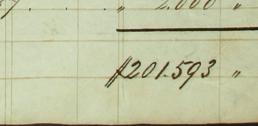 7. . . . " 2.000 "
$201.593 "